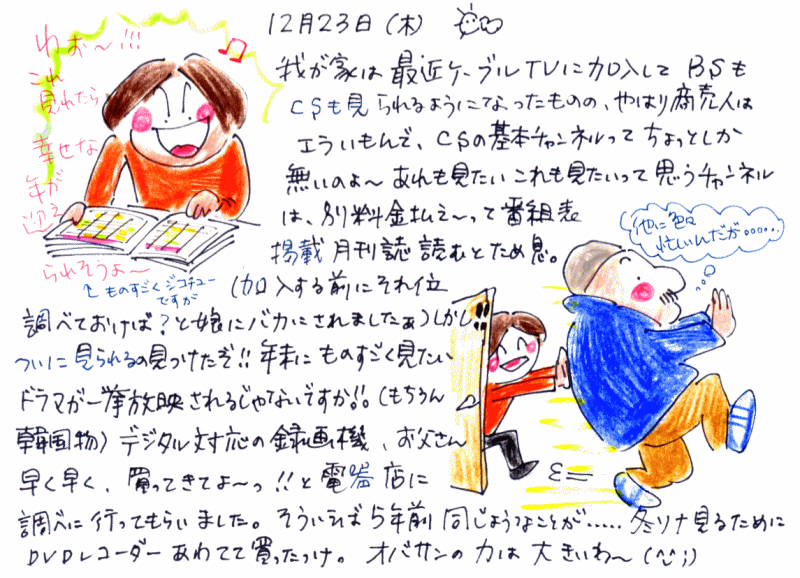 12月23日(木)
我が家は最近ケーブルTVに加入してBSも
CSも見られるようになったものの、やはり商売人は
エライもんで、CSの基本チャンネルってちょっとしか
無いのよ〜あれも見たいこれも見たいって思うチャンネル
は、別料金払え〜って番組表
掲載月刊誌読むとため息。
(加入する前にそれ位
調べておけば?と娘にバカにされましたぁ)しかし
ついに見られるの見つけたぞ!!年末にものすごく見たい
ドラマが一挙放映されるじゃないですか!!(もちろん
韓国物)デジタル対応の録画機、お父さん
早く早く、買ってきてよ〜っ!!と電器店に
調べに行ってもらいました。そういえば5年前同じようなことが.....冬ソナ見るために
DVDレコーダーあわてて買ったっけ。オバサンの力は大きいわ〜(^^;)
わぉ〜!!!
これ
見れたら
幸せな
年が
迎え
られそうよ〜
↑ものすごくジコチュー
ですが
他に色々
忙しいんだが......